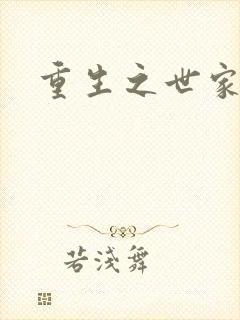 重生之世家
若浅舞